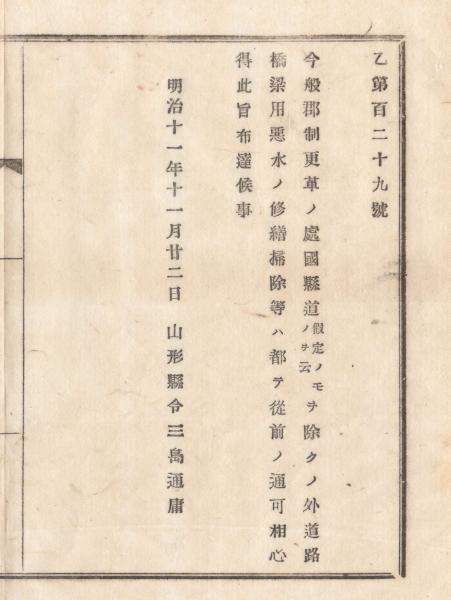 乙第百二十九號
今般郡制更革ノ處國縣道假定ノモノヲ云ヲ除クノ外道路
橋梁用悪水ノ修繕掃除等ハ都テ從前ノ通可相心
得此旨布達候事
明治十一年十一月廿二日 山形縣令三島通庸